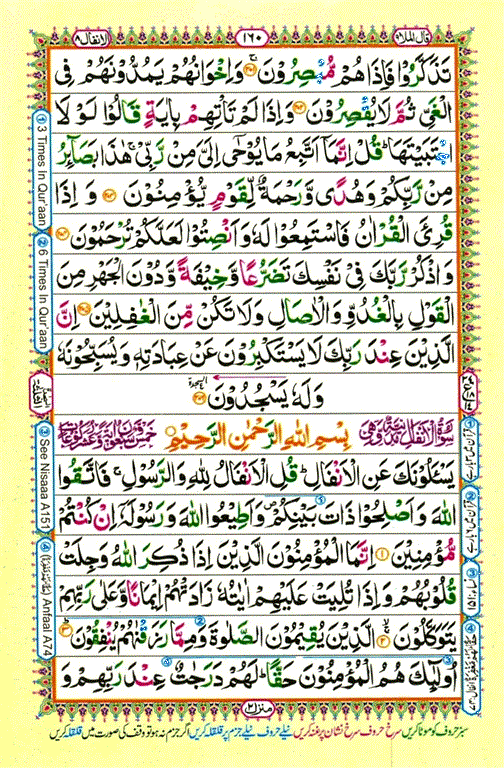 قال الملا ٩
١٦٠
الانفال ٨
تَذَكَّرُوْا فَاِذَا هُمْ مُّبْصِرُوْنَ ۚ وَاِخْوَانُهُمْ يَمُدُّوْنَهُمْ فِى
الْغَىِّ ثُمَّ لَا يُقْصِرُوْنَ وَاِذَا لَمْ تَاْتِهِمْ بِاٰيَةٍ قَالُوْا لَوْ لَا
اجْتَبَيْتَهَا ؕ قُلْ اِنَّمَاۤ اَتَّبِعُ مَا يُوْحٰۤى اِلَىَّ مِنْ رَّبِّىْ ۚ هٰذَا بَصَآئِرُ
مِنْ رَّبِّكُمْ وَهُدًى وَّرَحْمَةٌ لِّقَوْمٍ يُّؤْمِنُوْنَ وَ اِذَا
قُرِئَ الْقُرْاٰنُ فَاسْتَمِعُوْا لَهٗ وَاَنْصِتُوْا لَعَلَّكُمْ تُرْحَمُوْنَ
وَ اذْكُرْ رَّبَّكَ فِىْ نَفْسِكَ تَضَرُّعًا وَّخِيْفَةً وَّ دُوْنَ الْجَهْرِ مِنَ
الْقَوْلِ بِالْغُدُوِّ وَالْاٰصَالِ وَلَا تَكُنْ مِّنَ الْغٰفِلِيْنَ اِنَّ
الَّذِيْنَ عِنْدَ رَبِّكَ لَا يَسْتَكْبِرُوْنَ عَنْ عِبَادَتِهٖ وَيُسَبِّحُوْنَهٗ
وَلَهٗ يَسْجُدُوْنَ
بِسْمِ اللهِ الرَّحْمٰنِ الرَّحِيْمِ
يَسْـَٔلُوْنَكَ عَنِ الْاَنْفَالِ ؕ قُلِ الْاَنْفَالُ لِلّٰهِ وَالرَّسُوْلِ ۚ فَاتَّقُوا
اللهَ وَاَصْلِحُوْا ذَاتَ بَيْنِكُمْ وَاَطِيْعُوا اللهَ وَرَسُوْلَهٗۤ اِنْ كُنْتُمْ
مُّؤْمِنِيْنَ ١ اِنَّمَا الْمُؤْمِنُوْنَ الَّذِيْنَ اِذَا ذُكِرَ اللهُ وَجِلَتْ
قُلُوْبُهُمْ وَاِذَا تُلِيَتْ عَلَيْهِمْ اٰيٰتُهٗ زَادَتْهُمْ اِيْمَانًا وَّعَلٰى رَبِّهِمْ
يَتَوَكَّلُوْنَ ٢ الَّذِيْنَ يُقِيْمُوْنَ الصَّلٰوةَ وَمِمَّا رَزَقْنٰهُمْ يُنْفِقُوْنَ ٣
اُولٰٓئِكَ هُمُ الْمُؤْمِنُوْنَ حَقًّا ؕ لَهُمْ دَرَجٰتٌ عِنْدَ رَبِّهِمْ وَ
منزل ٢
① 3 Times In Qur'aan
② 6 Times In Qur'aan
③ See Nisaaa A151
④ Anfaal A74
سبز حروف کو موٹا کریں سرخ حروف سرخ نشان پر غنہ کریں نیلے حروف نیلے جزم پر قلقلہ کریں اگر جزم نہ ہو تو وقف کی صورت میں قلقلہ کریں